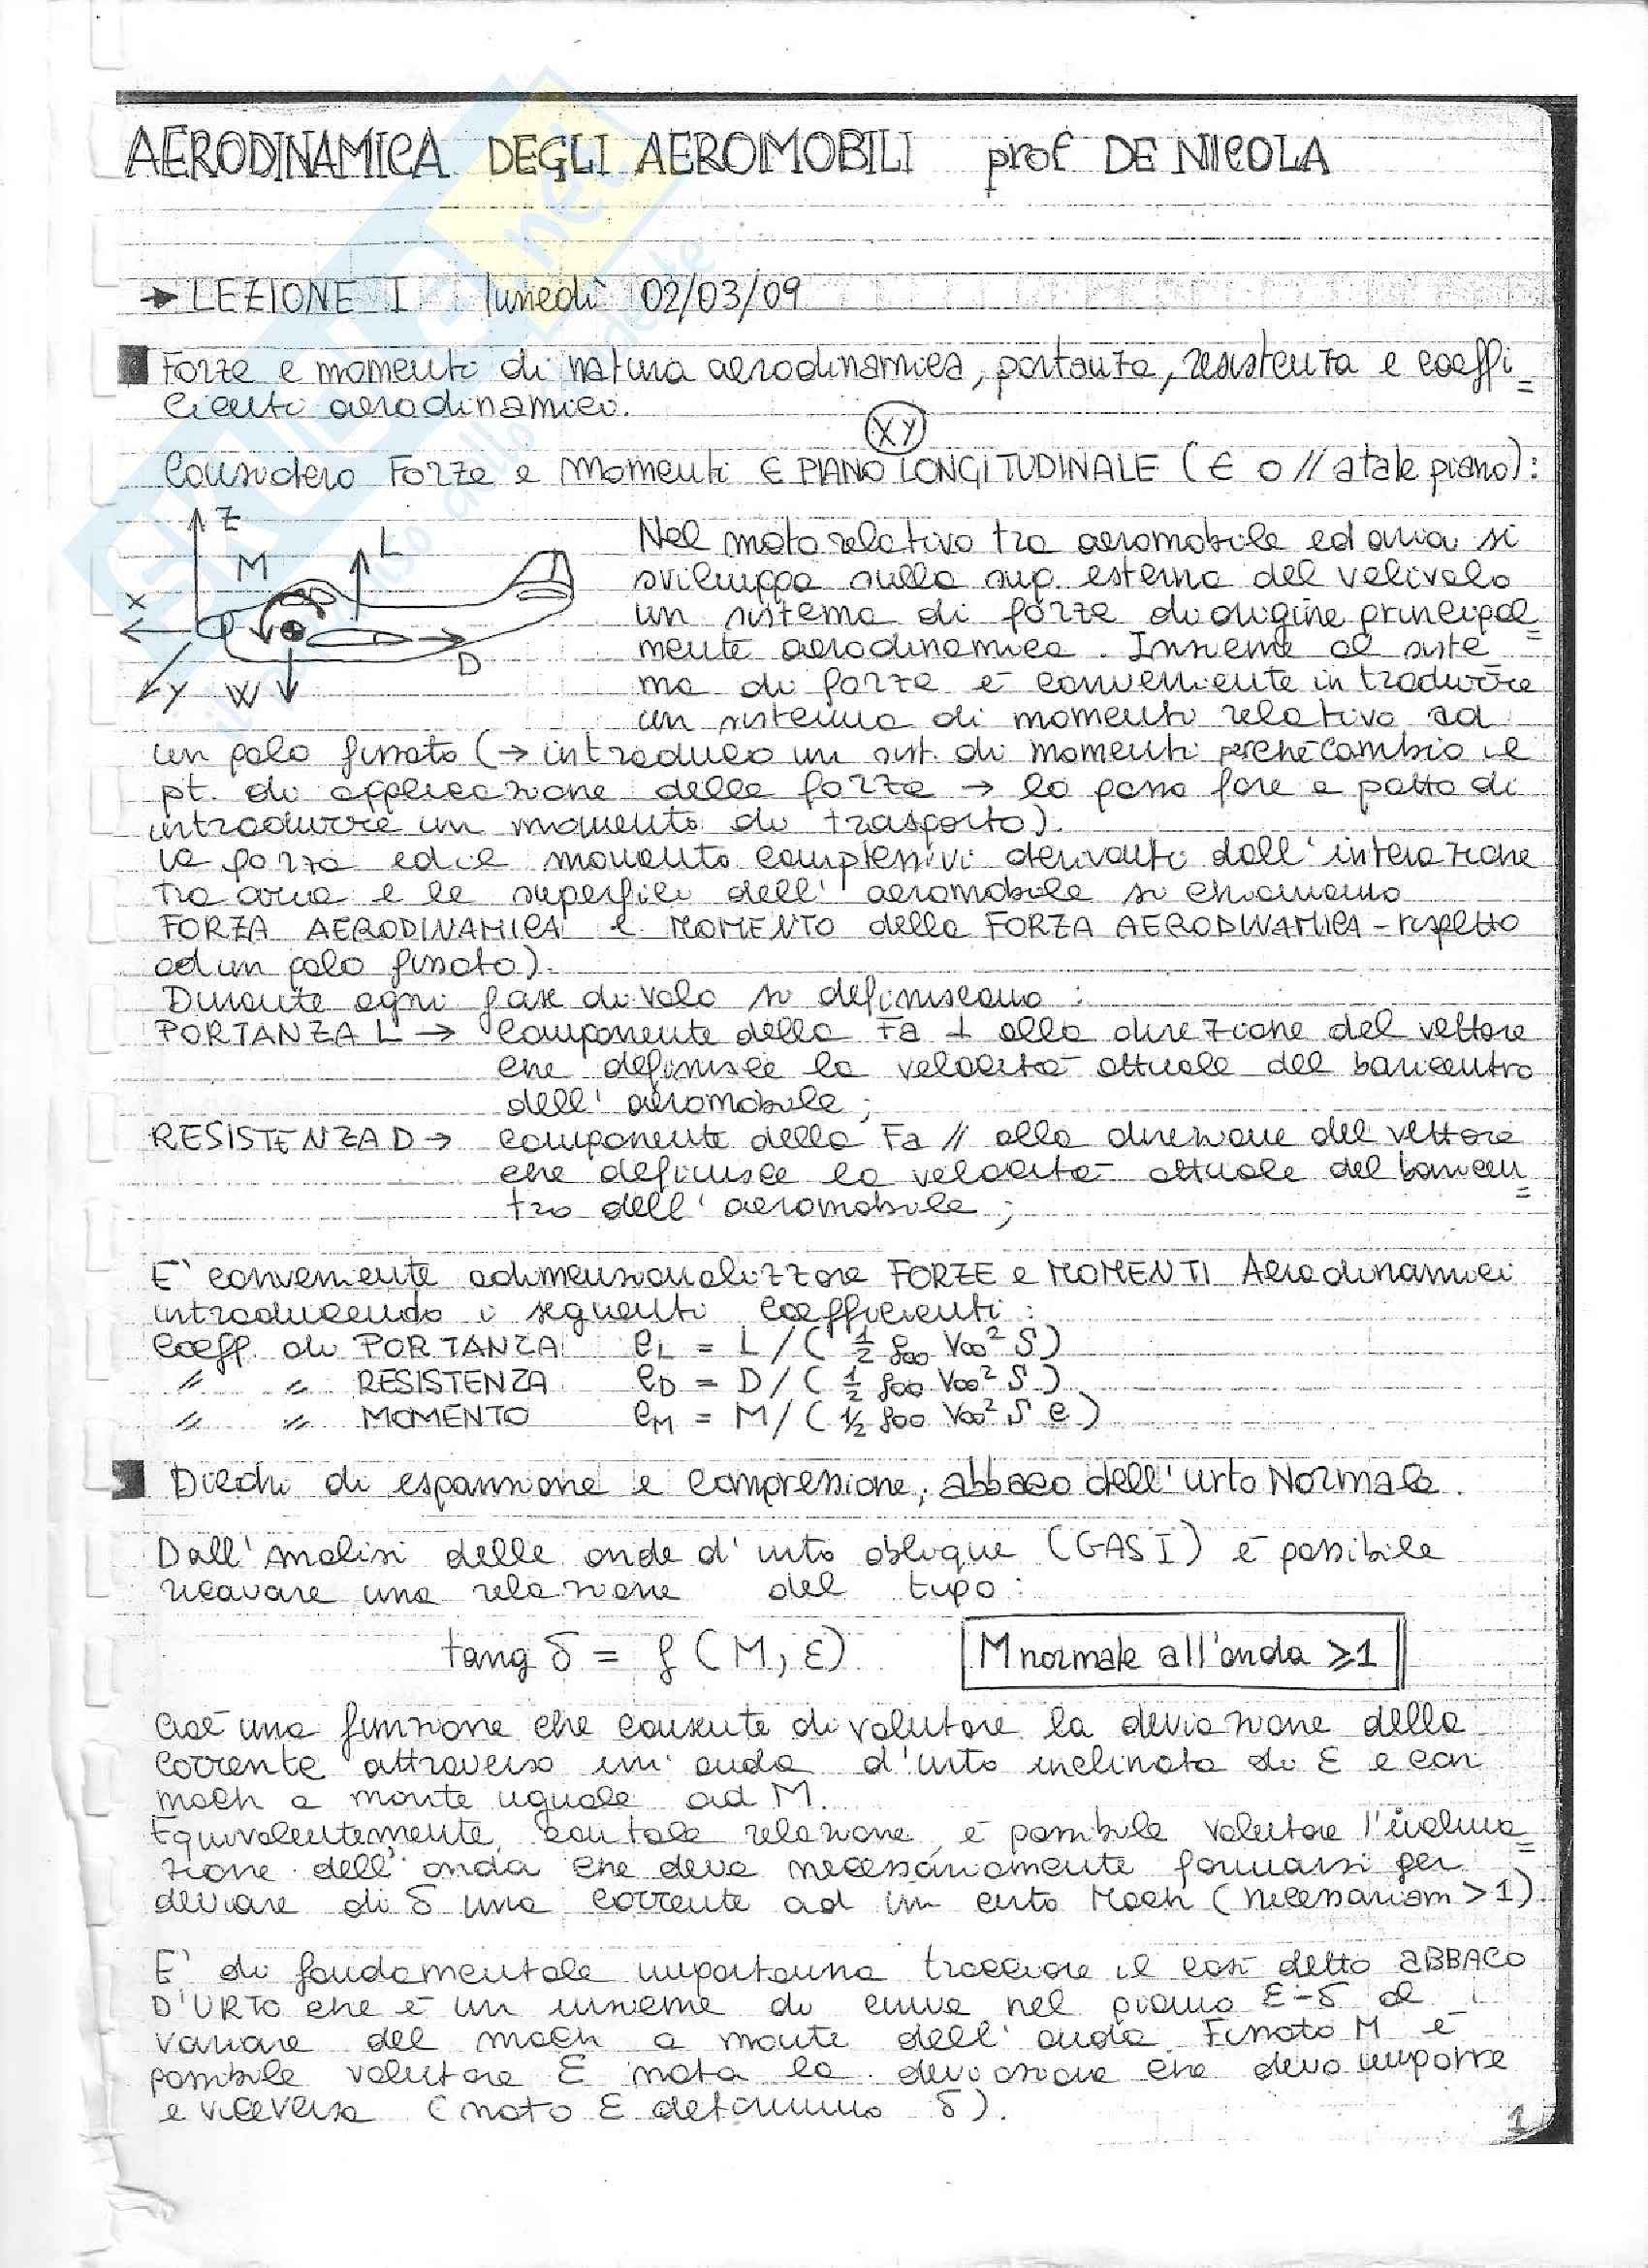 AERODINAMICA DEGLI AEROMOBILI prof DE NICOLA
→ LEZIONE I lunedì 02/03/09
Forze e momenti di natura aerodinamica, portanza, resistenza e coeffi=
cienti aerodinamici.
XY
Considero Forze e Momenti ∈ PIANO LONGITUDINALE (∈ o // a tale piano):
Z
M
L
X
D
Y
W
Nel moto relativo tra aeromobile ed aria si
sviluppa sulla sup. esterna del velivolo
un sistema di forze di origine principal=
mente aerodinamica. Insieme al siste=
ma di forze è conveniente introdurre
un sistema di momenti relativo ad
un polo fissato (→ introduco un sist. di momenti perché cambio il
pt. di applicazione delle forze → lo posso fare a patto di
introdurre un momento di trasporto).
la forza ed il momento complessivi derivanti dall'interazione
tra aria e le superfici dell'aeromobile si chiamano
FORZA AERODINAMICA e MOMENTO della FORZA AERODINAMICA - rispetto
ad un polo fissato).
Durante ogni fase di volo si definiscono:
PORTANZA L → componente della Fa ⊥ alla direzione del vettore
che definisce la velocità attuale del baricentro
dell'aeromobile;
RESISTENZA D → componente della Fa // alla direzione del vettore
che definisce la velocità attuale del baricen=
tro dell'aeromobile;
E' conveniente adimensionalizzare FORZE e MOMENTI Aerodinamici
introducendo i seguenti coefficienti:
Coeff. di PORTANZA CL = L / ( 1/2 ρ∞ V∞² S )
〃 〃 RESISTENZA CD = D / ( 1/2 ρ∞ V∞² S )
〃 〃 MOMENTO CM = M / ( 1/2 ρ∞ V∞² S c )
Dischi di espansione e compressione, abbaco dell'urto Normale.
Dall'analisi delle onde d'urto oblique (GAS I) è possibile
ricavare una relazione del tipo:
tang δ = f (M, ε) M normale all'onda ⩾1
cioè una funzione che consente di valutare la deviazione della
corrente attraverso un'onda d'urto inclinata di ε e con
mach a monte uguale ad M.
Equivalentemente, con tale relazione, è possibile valutare l'inclina=
zione dell'onda che deve necessariamente formarsi per
deviare di δ una corrente ad un certo Mach (necessariam > 1).
E' di fondamentale importanza tracciare il così detto ABBACO
D'URTO che è un insieme di curve nel piano ε-δ al
variare del mach a monte dell'onda. Fissato M è
possibile valutare ε nota la deviazione che devo imporre
e viceversa (noto ε determino δ).
1